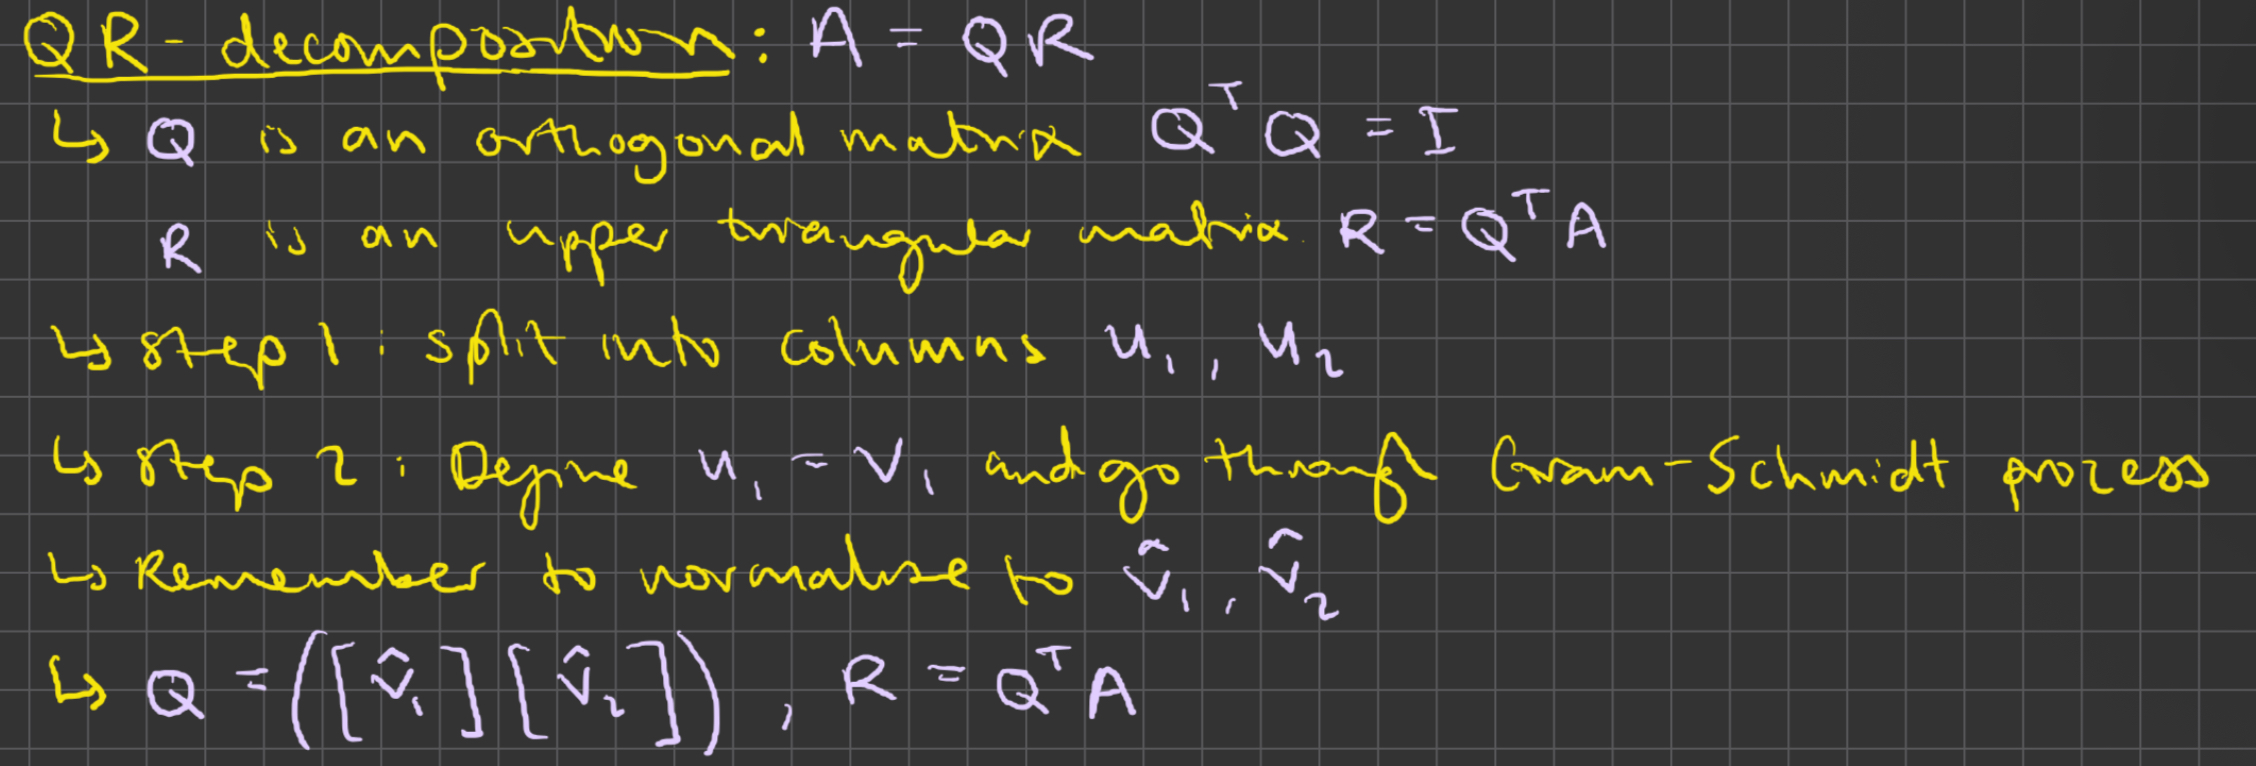 QR-decomposition: A = QR
↳ Q is an orthogonal matrix Qᵀ Q = I
R is an upper triangular matrix. R = Qᵀ A
↳ step 1: split into columns u₁, u₂
↳ step 2: Define u₁ = v₁ and go through Gram-Schmidt process
↳ Remember to normalise to v̂₁, v̂₂
↳ Q = ([v̂₁][v̂₂]), R = Qᵀ A